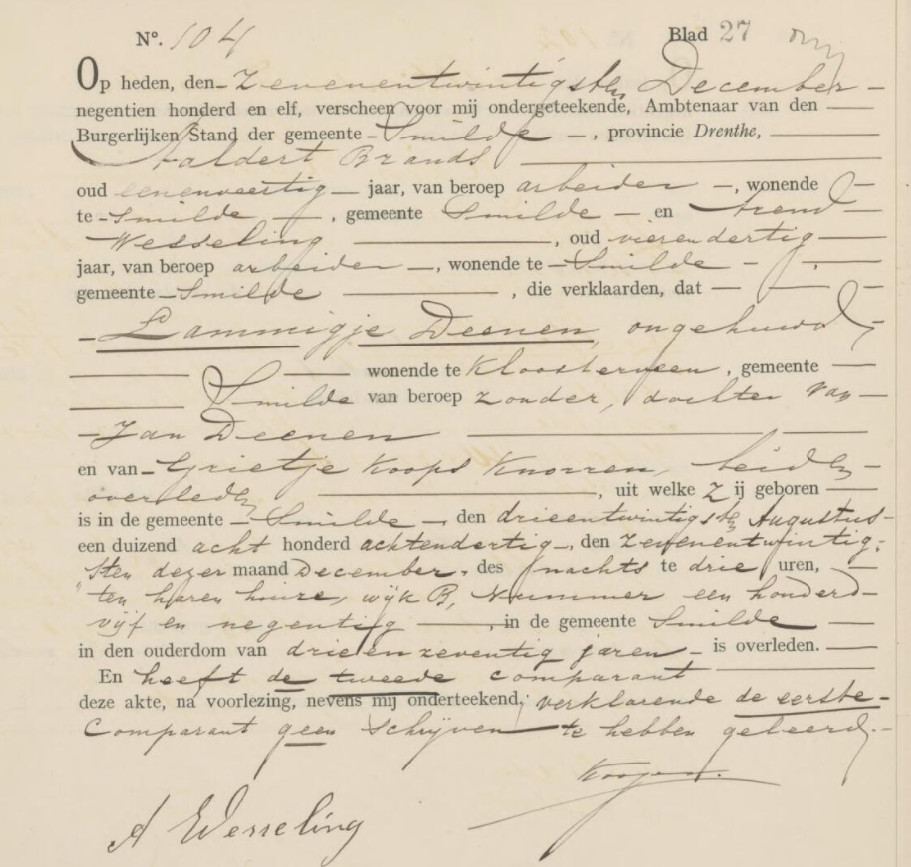 Nº. 104 Blad 27
Op heden, den zevenentwintigsten December
negentien honderd en elf, verscheen voor mij ondergeteekende, Ambtenaar van den
Burgerlijken Stand der gemeente Smilde, provincie Drenthe,
Aaldert Brands
oud eenenveertig jaar, van beroep arbeider, wonende
te Smilde, gemeente Smilde en Arend
Wesseling, oud vierendertig
jaar, van beroep arbeider, wonende te Smilde,
gemeente Smilde, die verklaarden, dat
Lammigje Deenen, ongehuwd,
wonende te Kloosterveen, gemeente
Smilde van beroep zonder, dochter van
Jan Deenen
en van Grietje Koops Knorren, beiden
overleden, uit welke Zij geboren
is in de gemeente Smilde, den drieentwintigsten Augustus
een duizend acht honderd achtendertig, den zevenentwintig-
"sten dezer maand December, des nachts te drie uren,
ten haren huize, wijk B, Nummer een honderd
vijf en negentig, in de gemeente Smilde
in den ouderdom van drieenzeventig jaren is overleden.
En heeft de tweede comparant
deze akte, na voorlezing, nevens mij onderteekend, verklarende de eerste
Comparant geen schrijven te hebben geleerd.
A Wesseling